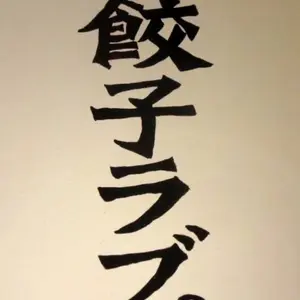 餃子ラブ。